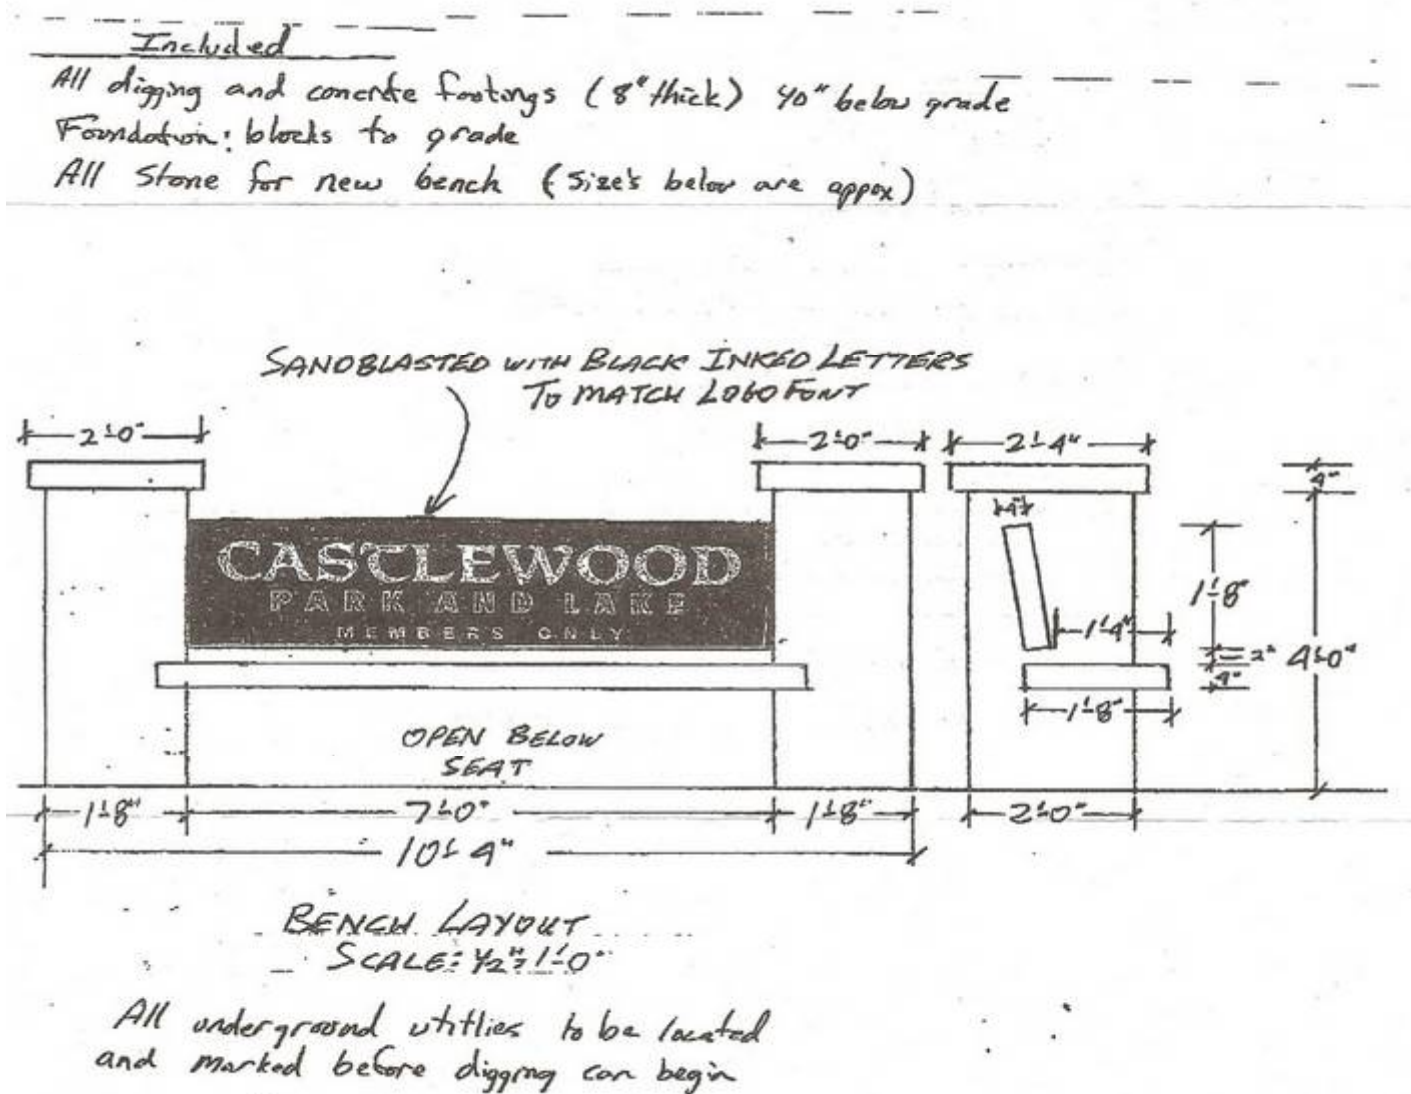 Included
All digging and concrete footings (8" thick) 40" below grade
Foundation: blocks to grade
All Stone for new bench (Size's below are appox)
SANDBLASTED WITH BLACK INKED LETTERS
TO MATCH LOGO FONT
2'-0" 2'-0" 2'-4"
4"
4"
CASTLEWOOD
PARK AND LAKE
MEMBERS ONLY
1'-8"
1'-4"
2" 4'-0"
4"
1'-8"
OPEN BELOW
SEAT
1'-8" 7'-0" 1'-8" 2'-0"
10'-4"
BENCH LAYOUT
SCALE: 1/2" = 1'-0"
All underground utitlies to be located
and marked before digging can begin